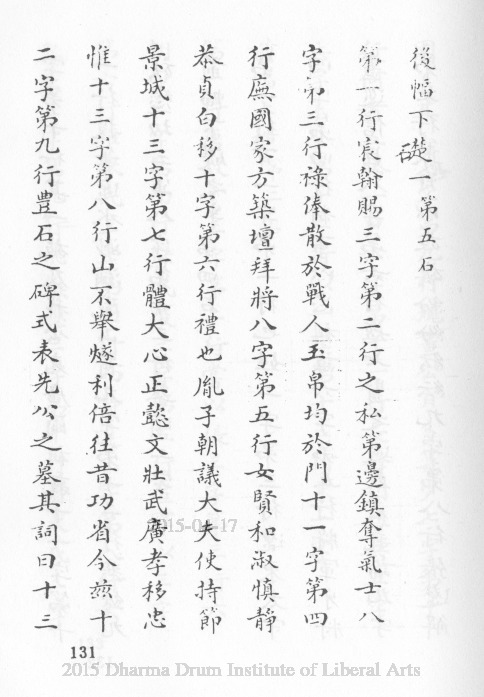 後幅下礎一第五石
第一行宸翰賜三字第二行之私第邊鎮奪氣士八
字第三行祿俸散於戰人玉帛均於門十一字第四
行廡國家方築壇拜將八字第五行女賢和淑慎靜
恭貞白移十字第六行禮也胤子朝議大夫使持節
景城十三字第七行體大心正懿文壯武廣孝移忠
惟十三字第八行山不舉燧利倍往昔功省今茲十
二字第九行豊石之碑式表先公之墓其詞曰十三
131
2015-04-17
2015 Dharma Drum Institute of Liberal Arts